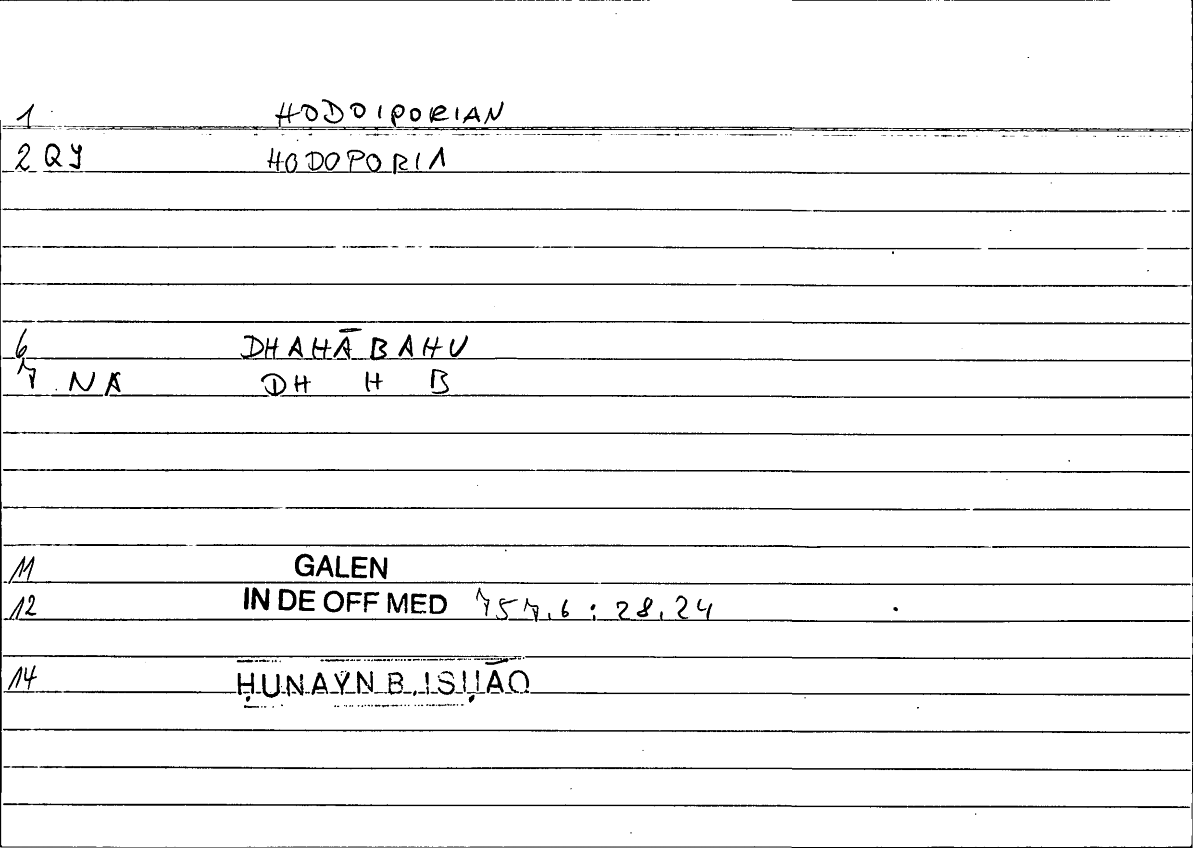 1 HODOIPORIAN
2 QY HODOPORIA
6 DHAHĀBAHU
7 NA DH H B
11 GALEN
12 IN DE OFF MED 757.6 : 28.24
14 ḤUNAYN B. ISḤĀQ